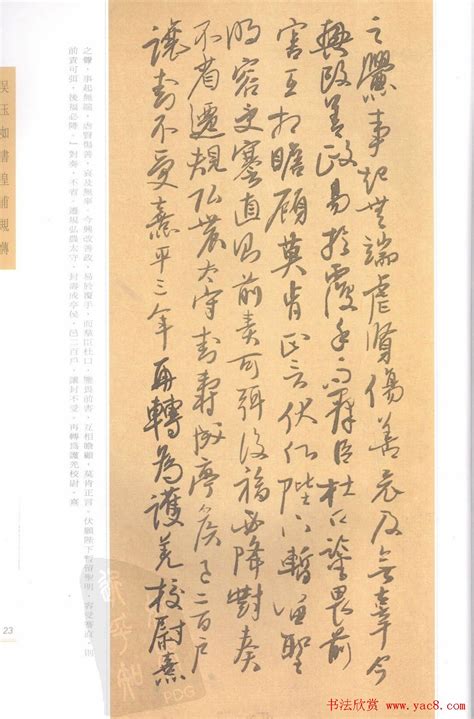 之釁事起無端虐賢傷善哀及無辜今
興改善政易於覆手而群臣杜口鑒畏前
害互相瞻顧莫肯正言伏願陛下暫留聖
明容受謇直則前責可弭後福必降對奏
不省遷規弘農太守封壽成亭侯邑二百戶
讓封不受熹平三年再轉為護羌校尉熹
之釁，事起無端，虐賢傷善，哀及無辜。今興改善政，易於覆手，而群臣杜口，鑒畏前害，互相瞻顧，莫肯正言。伏願陛下暫留聖明，容受謇直，則
前責可弭，後福必降。」對奏，不省。遷規弘農太守，封壽成亭侯，邑二百戶，讓封不受。再轉為護羌校尉。熹
吳玉如書皇甫規傳
23
PDG
书法欣赏
www.yac8.com